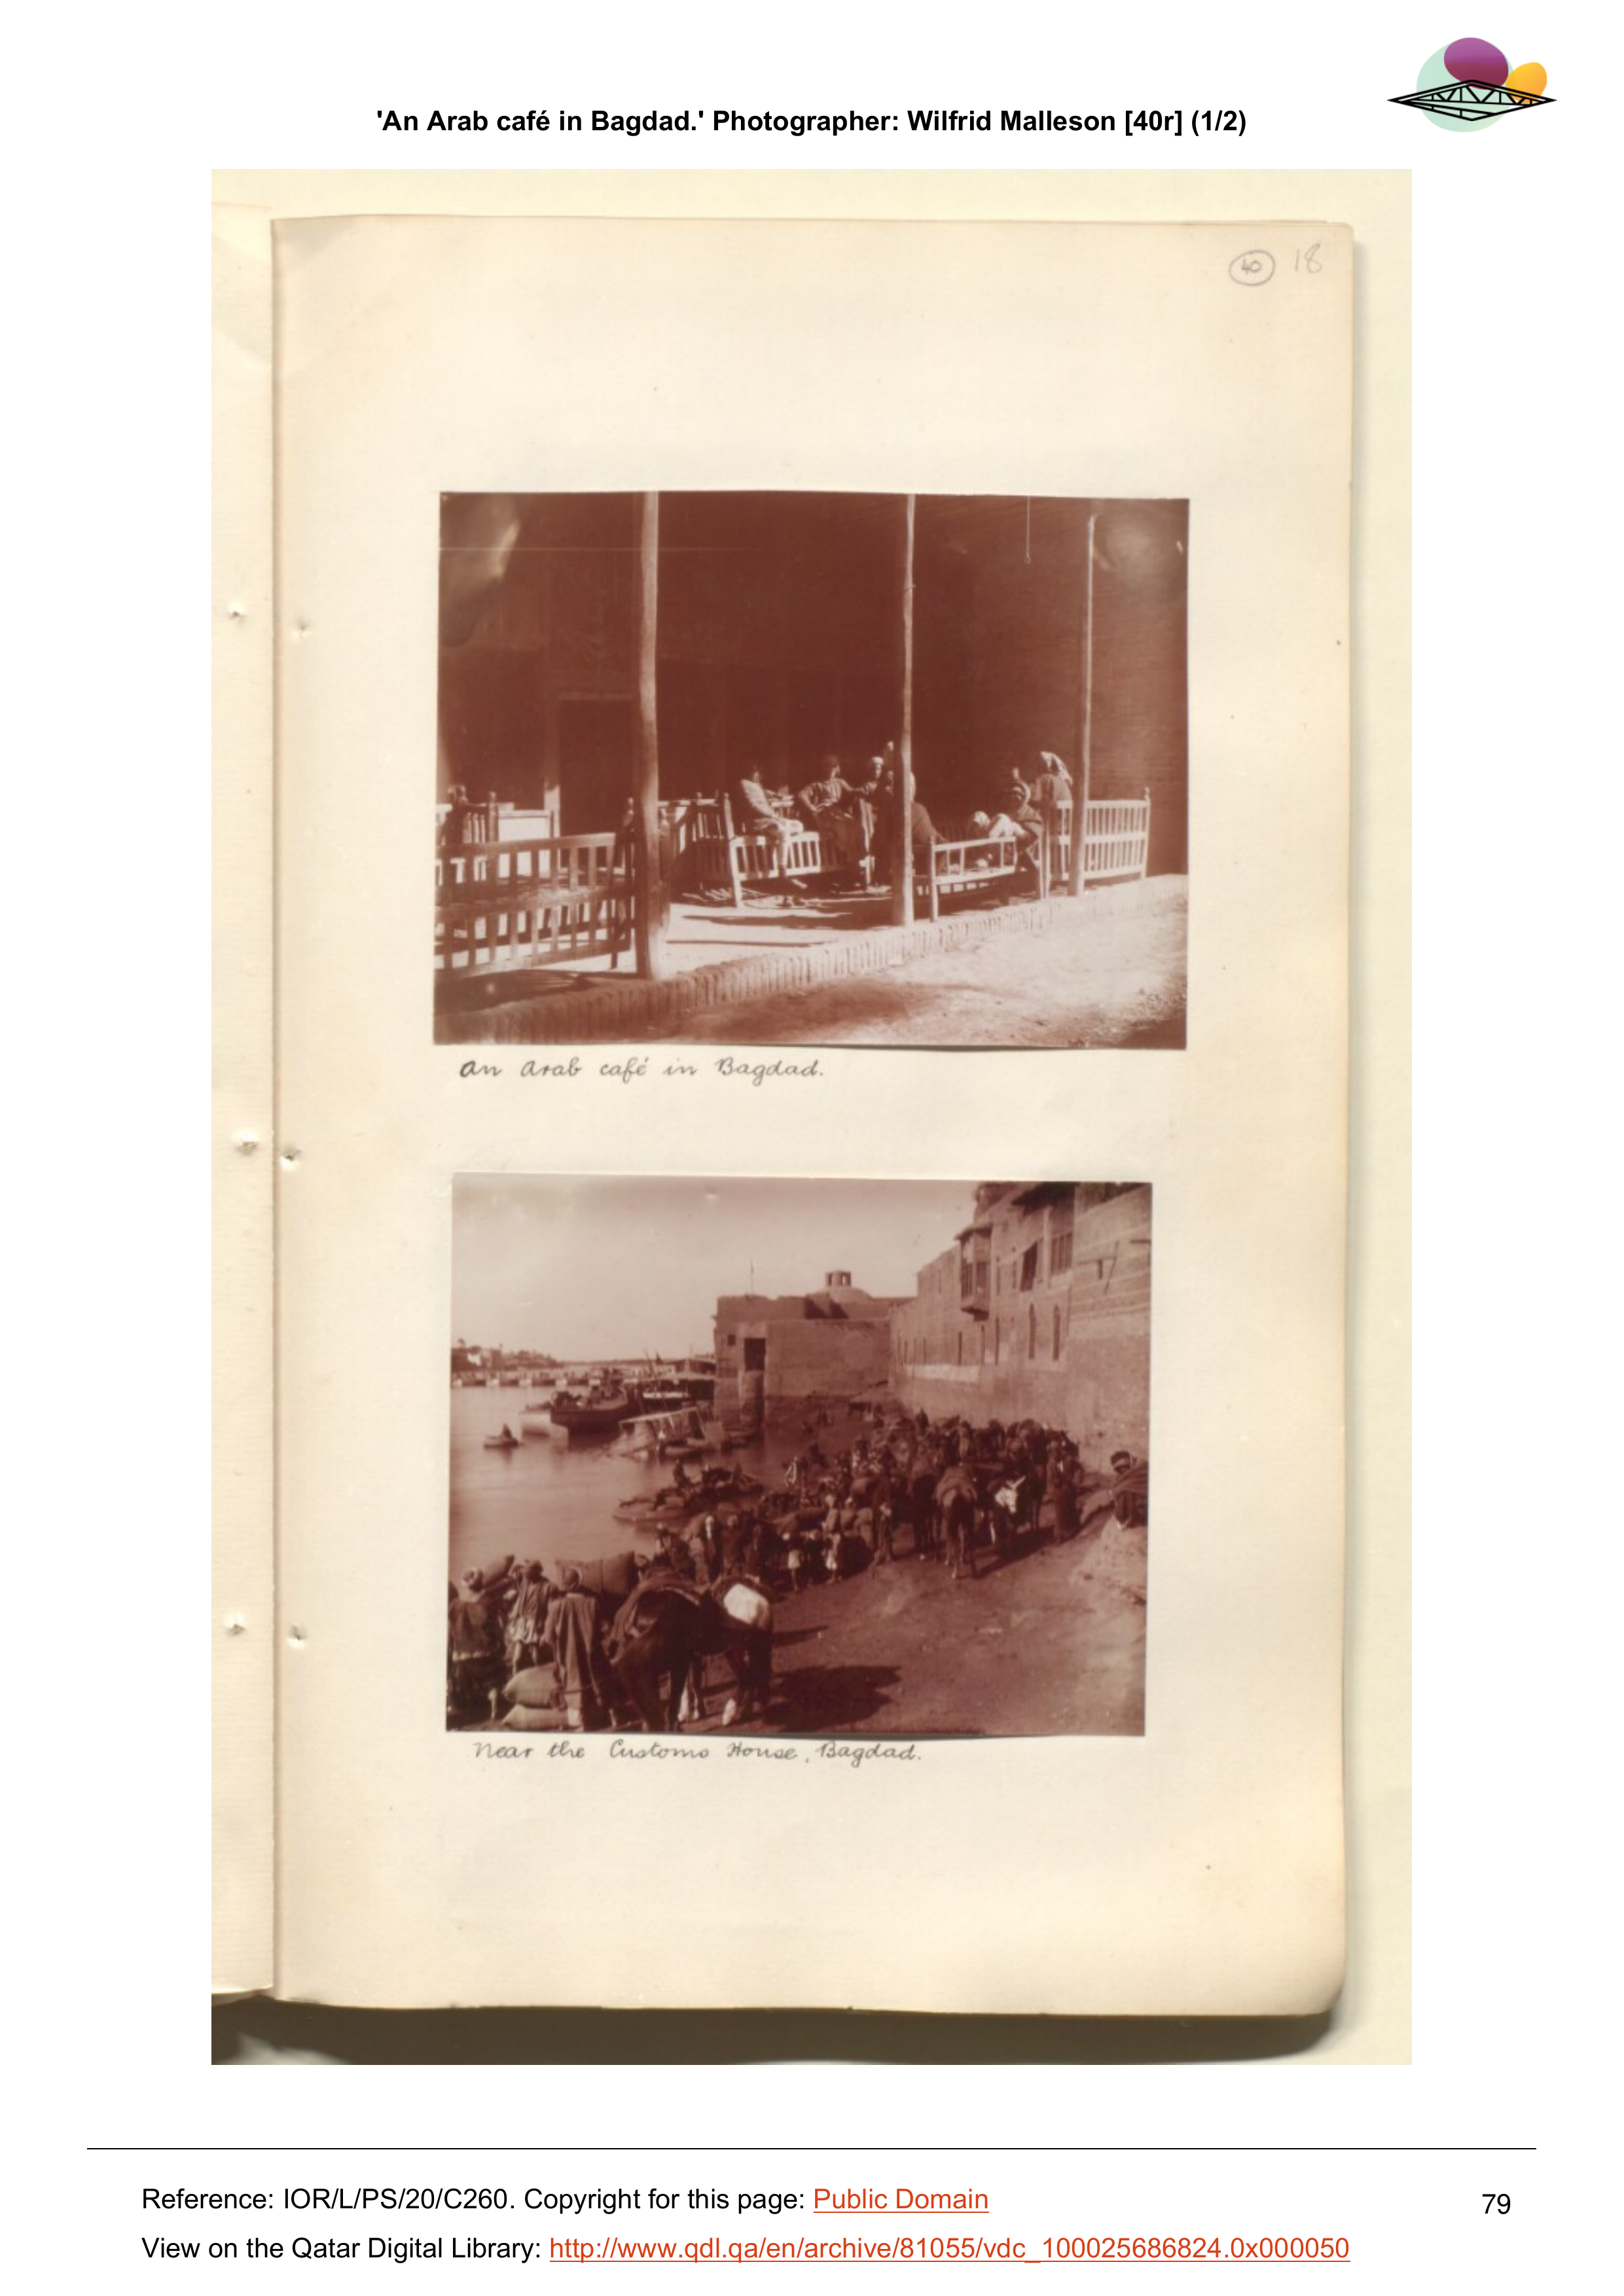 'An Arab café in Bagdad.' Photographer: Wilfrid Malleson [40r] (1/2)
40 18
An Arab café in Bagdad.
Near the Customs House, Bagdad.
Reference: IOR/L/PS/20/C260. Copyright for this page: Public Domain
79
View on the Qatar Digital Library: http://www.qdl.qa/en/archive/81055/vdc_100025686824.0x000050